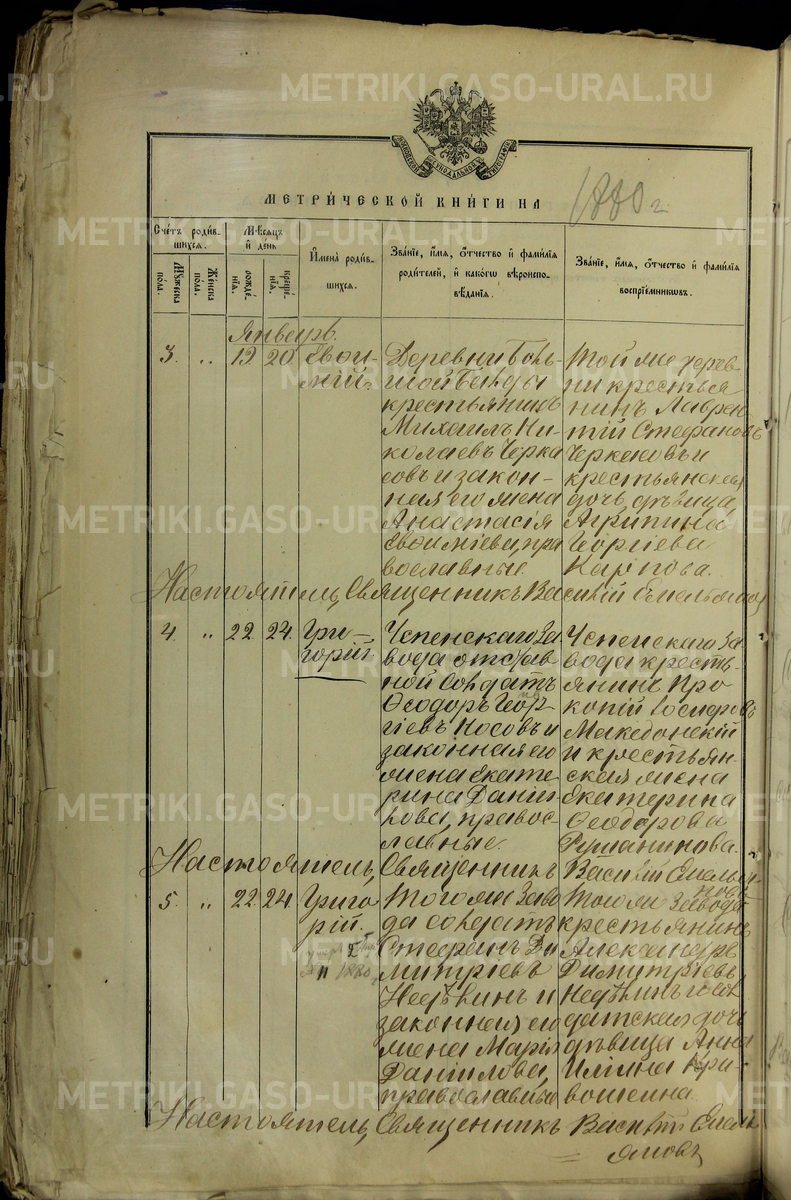 METRIKI.GASO-URAL.RU
МОСКОВСКОЙ СѴНОДАЛЬНОЙ ТИПОГРАФІИ
МЕТРИ́ЧЕСКОЙ КНИ́ГИ НА 1880 г.
Сче́тъ роди́в-
шихся.
Му́жеска по́ла.
Же́нска по́ла.
Мѣ́сяцъ
и҆ де́нь
рожде́нїѧ.
креще́нїѧ.
И҆мена̀ роди́в-
шихся.
Зва́нїе, и҆́мѧ, ѻ҆́тчество и҆ фами́лїѧ
роди́телей, и҆ како́гѡ вѣроиспо-
вѣ́данїѧ.
Зва́нїе, и҆́мѧ, ѻ҆́тчество и҆ фами́лїѧ
воспрїе́мникѡвъ.
Январь
3. „ 19 20
Деревни Боль-
шой Бейды
крестьянинъ
Михаилъ Ни-
колаевъ Черка
совъ и закон-
ная его жена
Анастасія
Евоиміева, пра
вославные.
Той же дерев-
ни крестья
нинъ Лаврен
тій Стефановъ
Черкасовъ и
крестьянская
дочь, дѣвица
Агрипина
Георгіева
Карпова.
Настоятель, Священникъ Василій Емельяновъ
4. „ 22. 24.
Гри-
горій.
Успенскаго За
вода отстав
ной солдатъ
Ѳеодоръ Геор
гіевъ Носовъ и
законная его
жена Екате
рина Данил
лова, правос
лавные.
Успенскаго За
вода кресть-
янинъ Про
копій Іосифовъ
Македонскій
и крестьян-
ская жена
Екатерина
Ѳеодорова
Румянцова.
Настоятель, Священникъ Василій Емельяновъ
5. „ 22. 24.
Григо
рій.
1880
Того же Заво
да солдатъ
Стефанъ Ди
митріевъ
Недѣвинъ и
законная его
жена Марія
Данілова,
православные
Того же Завода
крестьянинъ
Александръ
Димитріевъ
Недѣвинъ и сол
датская дочь
дѣвица Анна
Иліина Кри-
вошеина.
Настоятель, Священникъ Василій Емель
яновъ